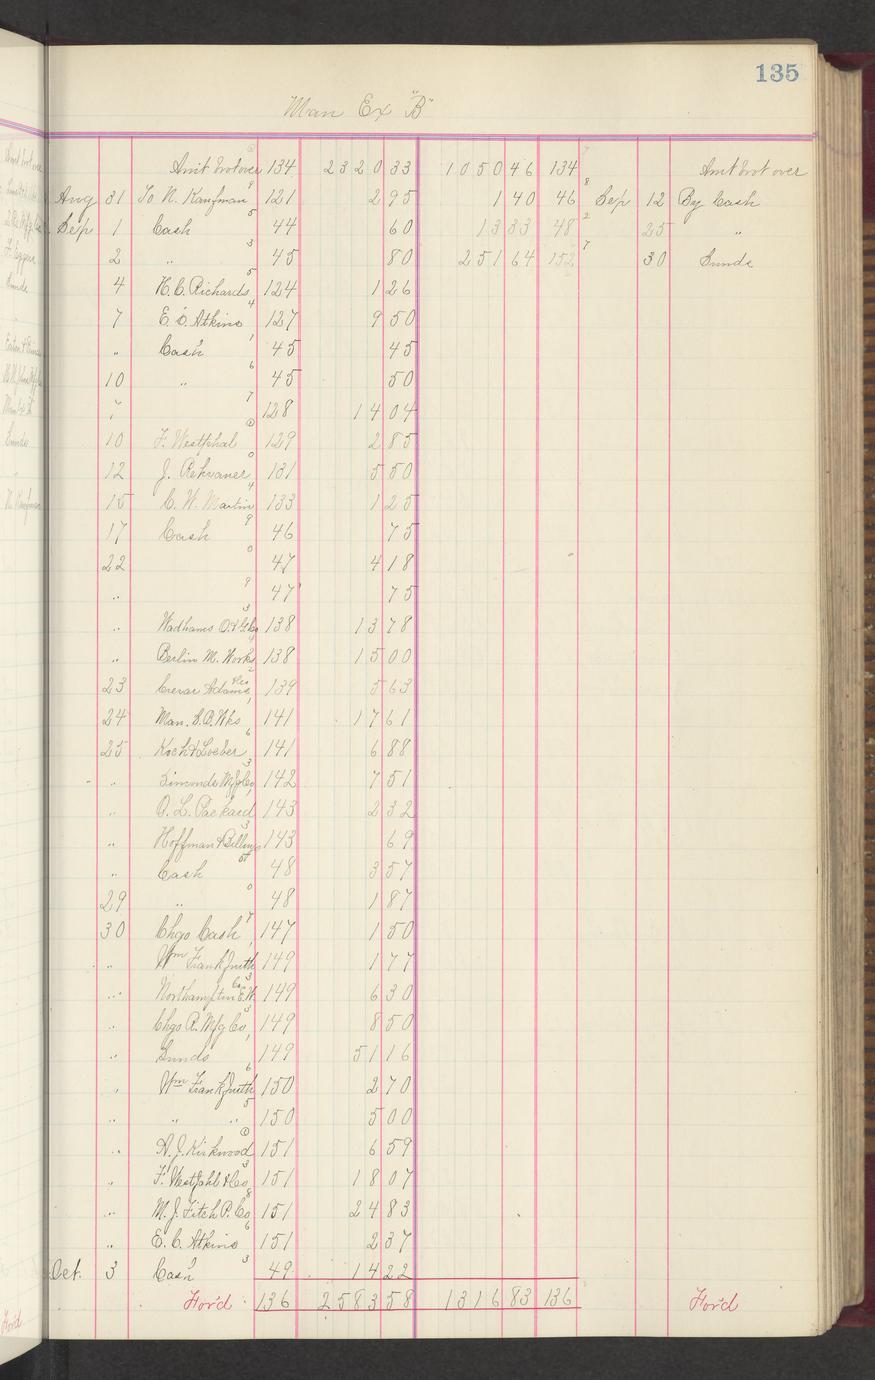 135
Man Ex "B"
Amt brot over 134 2320 33 1050 46 134 Amt brot over
Aug 31 To N. Kaufman 9 121 2 95 1 40 46 8 Sep 12 By Cash
Sep 1 Cash 5 44 60 13 33 48 2 25 "
2 " 3 45 80 251 64 152 7 30 Sunds
4 H. C. Richards 5 124 1 26
7 E. C. Atkins 4 127 9 50
" Cash 1 45 45
10 " 6 45 50
" 7 128 14 04
10 F. Westphal 129 2 85
12 J. 0 131 5 50
15 C. W. Martin 4 133 1 25
17 Cash 9 46 75
22 0 47 4 18
" 9 47 75
" Wadhams O. & G. Co 3 138 13 78
" Berlin M. Works 138 15 00
23 Crerar Adams & Co 2 139 5 63
24 Man. S. B. Wks 1 141 17 61
25 Koch & Loeber 6 141 6 88
" Simonds Mfg Co 3 142 7 51
" O. L. Packard 1 143 2 32
" Hoffman & Billings 3 143 69
" Cash 48 3 57
29 " 0 48 1 87
30 Chgo Cash 7 147 1 50
" Wm Frankfurth 149 1 77
" Northampton E. W. Co 3 149 6 30
" Chgo R. Mfg Co 3 149 8 50
" Sunds 149 51 16
" Wm Frankfurth 6 150 2 70
" " " 5 150 5 00
" A. J. Kirkwood 151 6 59
" F. Westfahl & Co 3 151 18 07
" M. J. Fitch P. Co 8 151 24 83
" E. C. Atkins 6 151 2 37
Oct. 3 Cash 3 49 14 22
For'd 136 2583 58 1316 83 136 For'd